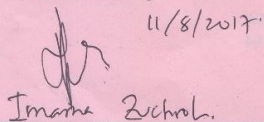 11/8/2017.
Imarna Zuchroh.